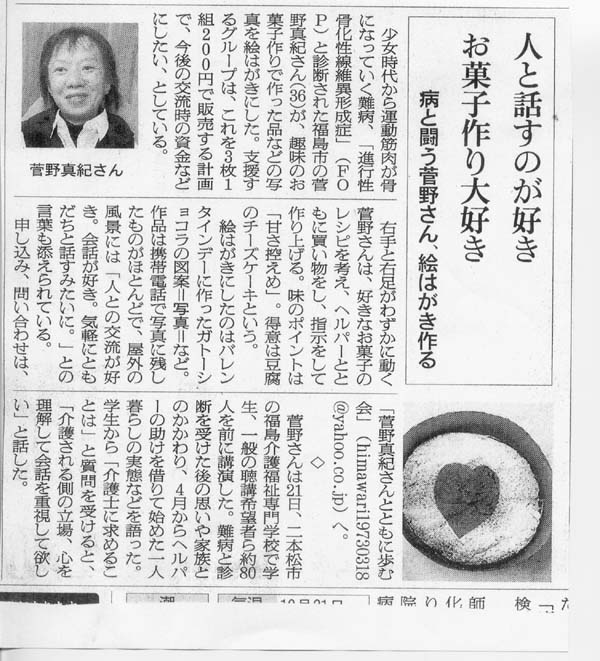 人と話すのが好き
お菓子作り大好き
病と闘う菅野さん、絵はがき作る
少女時代から運動筋肉が骨
になっていく難病、「進行性
骨化性線維異形成症」（ＦＯ
Ｐ）と診断された福島市の菅
野真紀さん(36)が、趣味のお
菓子作りで作った品などの写
真を絵はがきにした。支援す
るグループは、これを３枚１
組２００円で販売する計画
で、今後の交流時の資金など
にしたい、としている。
菅野真紀さん
右手と右足がわずかに動く
菅野さんは、好きなお菓子の
レシピを考え、ヘルパーとと
もに買い物をし、指示をして
作り上げる。味のポイントは
「甘さ控えめ」。得意は豆腐
のチーズケーキという。
絵はがきにしたのはバレン
タインデーに作ったガトーシ
ョコラの図案＝写真＝など。
作品は携帯電話で写真に残し
たものがほとんどで、屋外の
風景には「人との交流が好
き。会話が好き。気軽にとも
だちと話すみたいに。」との
言葉も添えられている。
申し込み、問い合わせは、
「菅野真紀さんとともに歩む
会」（himawari19730318
@yahoo.co.jp）へ。
◇
菅野さんは21日、二本松市
の福島介護福祉専門学校で学
生、一般の聴講希望者ら約80
人を前に講演した。難病と診
断を受けた後の思いや家族と
のかかわり、４月からヘルパ
ーの助けを借りて始めた一人
暮らしの実態などを語った。
学生から「介護士に求めるこ
とは」と質問を受けると、
「介護される側の立場、心を
理解して会話を重視して欲し
い」と話した。
潮
気温
10月21日
病院り化師
検